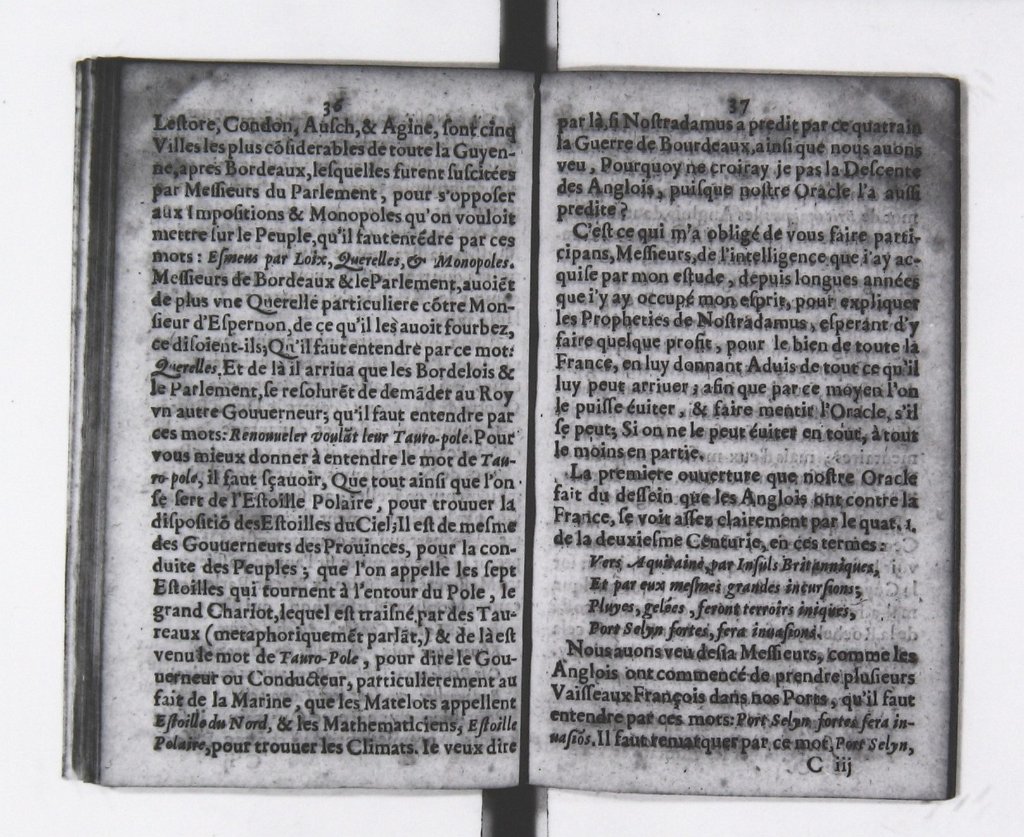 36
Lestore, Condon, Ausch, & Agine, sont cinq
Villes les plus cõsiderables de toute la Guyen-
ne, apres Bordeaux, lesquelles furent suscitées
par Messieurs du Parlement, pour s'opposer
aux Impositions & Monopoles qu'on vouloit
mettre sur le Peuple, qu'il faut entẽdre par ces
mots : Esmeus par Loix, Querelles, & Monopoles.
Messieurs de Bordeaux & le Parlement, auoiẽt
de plus vne Querelle particuliere cõtre Mon-
sieur d'Espernon, de ce qu'il les auoit fourbez,
ce disoient-ils; Qu'il faut entendre par ce mot:
Querelles. Et de là il arriua que les Bordelois &
le Parlement, se resolurẽt de demãder au Roy
vn autre Gouuerneur; qu'il faut entendre par
ces mots: Renouueler voulãt leur Tauro-pole. Pour
vous mieux donner à entendre le mot de Tau-
ro-pole, il faut sçauoir, Que tout ainsi que l'on
se sert de l'Estoille Polaire, pour trouuer la
dispositiõ des Estoilles du Ciel; Il est de mesme
des Gouuerneurs des Prouinces, pour la con-
duite des Peuples ; que l'on appelle les sept
Estoilles qui tournent à l'entour du Pole, le
grand Chariot, lequel est traisné par des Tau-
reaux (metaphoriquemẽt parlãt,) & de là est
venu le mot de Tauro-Pole, pour dire le Gou-
uerneur ou Conducteur, particulierement au
fait de la Marine, que les Matelots appellent
Estoille du Nord, & les Mathematiciens, Estoille
Polaire, pour trouuer les Climats. Ie veux dire
37
par là, si Nostradamus a predit par ce quatrain
la Guerre de Bourdeaux, ainsi que nous auons
veu, Pourquoy ne croiray je pas la Descente
des Anglois, puisque nostre Oracle l'a aussi
predite ?
C'est ce qui m'a obligé de vous faire parti-
cipans, Messieurs, de l'intelligence que i'ay ac-
quise par mon estude, depuis longues années
que i'y ay occupé mon esprit, pour expliquer
les Propheties de Nostradamus, esperant d'y
faire quelque profit, pour le bien de toute la
France, en luy donnant Aduis de tout ce qu'il
luy peut arriuer ; afin que par ce moyen l'on
le puisse éuiter, & faire mentir l'Oracle, s'il
se peut; Si on ne le peut éuiter en tout, à tout
le moins en partie.
La premiere ouuerture que nostre Oracle
fait du dessein que les Anglois ont contre la
France, se voit assez clairement par le quat. 1.
de la deuxiesme Centurie, en ces termes :
Vers Aquitaine, par Insuls Britanniques,
Et par eux mesmes grandes incursions;
Pluyes, gelées, seront terroirs iniques,
Port Selyn fortes, fera inuasions.
Nous auons veu desia Messieurs, comme les
Anglois ont commencé de prendre plusieurs
Vaisseaux François dans nos Ports, qu'il faut
entendre par ces mots: Port Selyn fortes fera in-
uasiõs. Il faut remarquer par ce mot, Port Selyn,
C iij